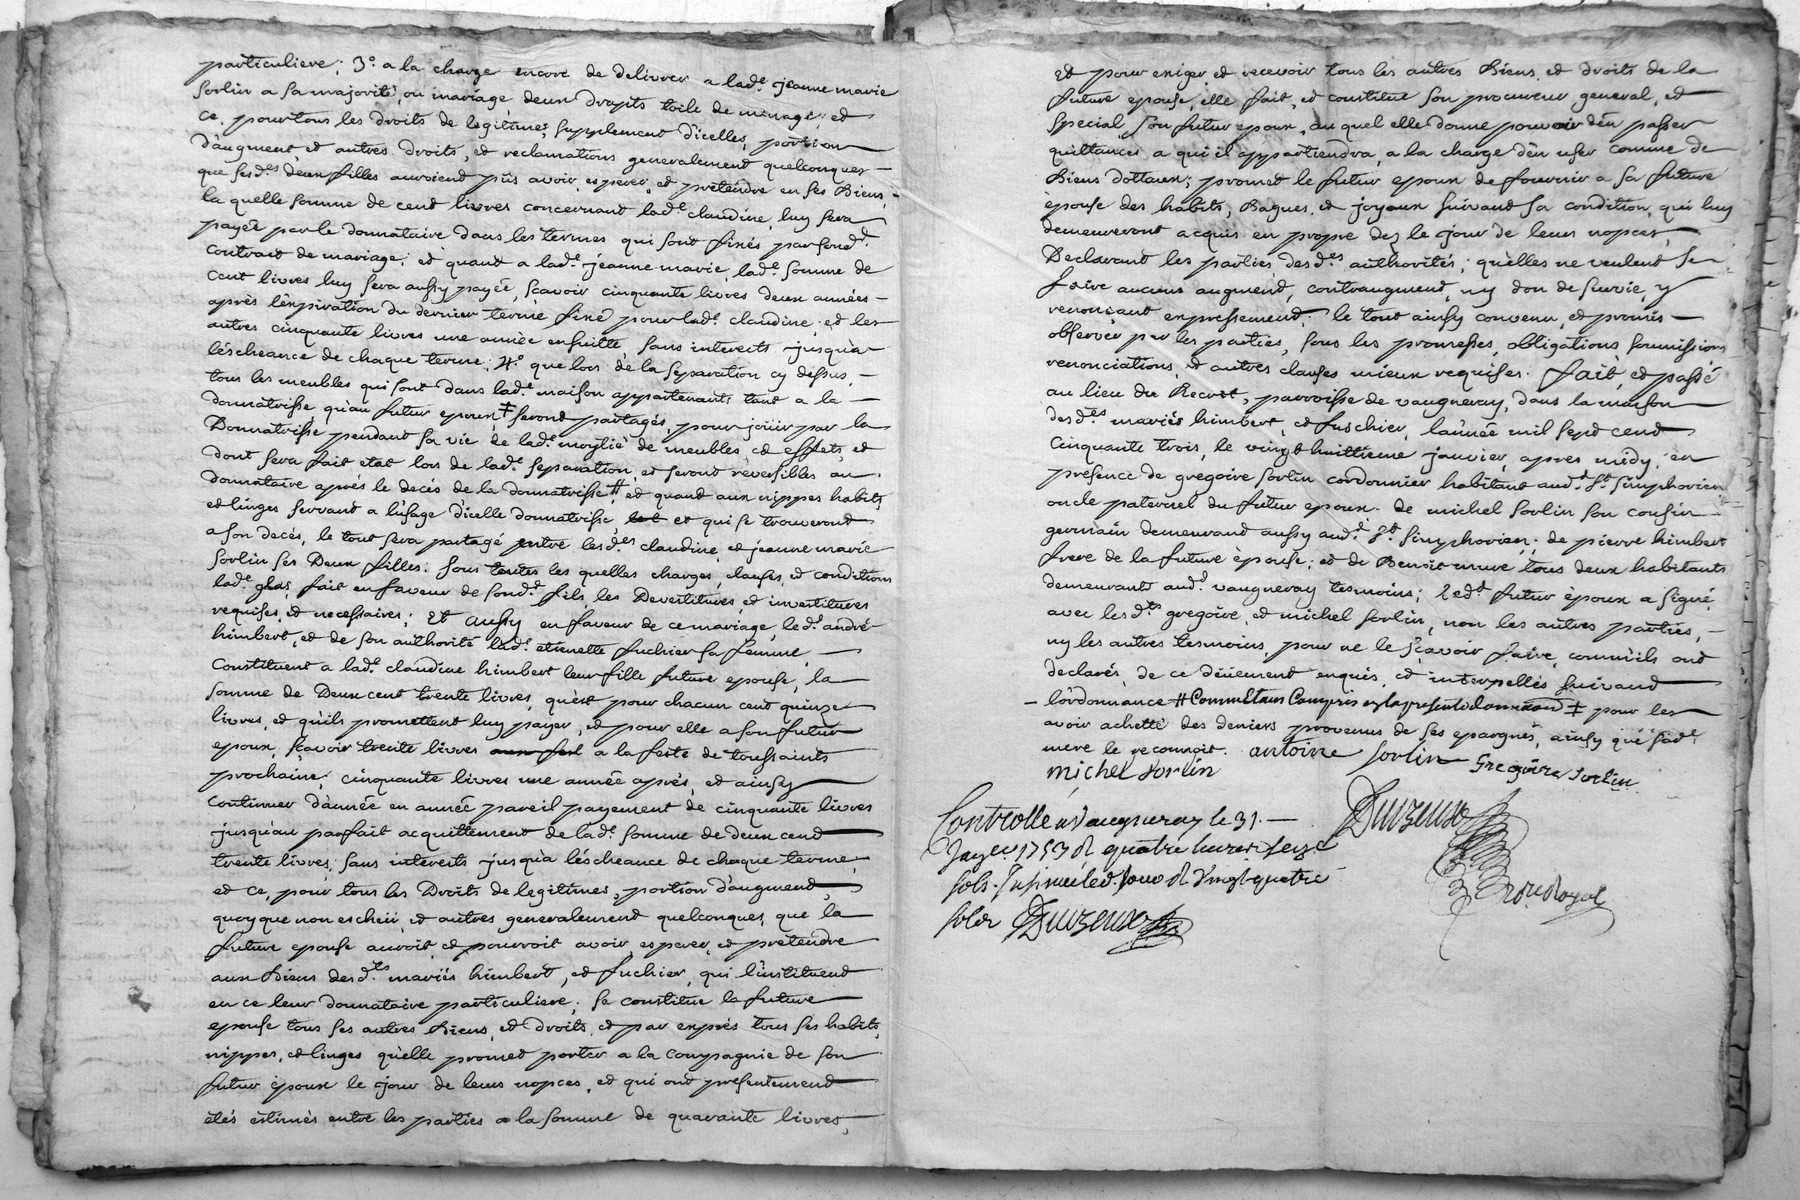 particuliere; 3.° a la charge encore de delivrer a lad.e jeanne marie
sorlin a sa majorité, ou mariage deux drapts toile de menage; et
ce, pour tous les droits de legitimes, supplement d'icelles, portion
d'augment, et autres droits, et reclamations generalement quelconques
que sesd.es deux filles auroient pûs avoir, esperer, et pretendre en ses Biens,
la quelle somme de cent livres concernant lad.e claudine, luy sera
payée par le donnataire dans les termes qui sont fixés par sond.t
contract de mariage; et quant a lad.e jeanne marie, lad.e somme de
cent livres luy sera aussy payée, sçavoir cinquante livres deux années
après l'expiration du dernier terme fixé pour lad.e claudine, et les
autres cinquante livres une année ensuitte sans interests jusqu'a
l'éscheance de chaque terme; 4.° que lors de la separation cy dessus,
tous les meubles qui sont dans lad.e maison appartenants tant a la
donnatrisse, qu'au futur epoux ‡ seront partagés, pour joüir par la
Donnatrisse pendant sa vie de lad.e moytié de meubles, et effets, et
dont sera fait etat lors de lad.e separation, et seront reversibles au
donnataire aprés le decés de la donnatrisse # et quant aux nippes habits,
et linges servant a l'usage d'icelle donnatrisse et qui se trouveront
a son decés, le tout sera partagé entre lesd.es claudine, et jeanne marie
sorlin ses Deux filles. sous toutes les quelles charges, clauses, et conditions
lad.e fait en faveur de sond.t fils, les Devestitures, et investitures
requises, et necessaires; Et aussy en faveur de ce mariage, led.t andré
himbert, et de son authorité lad.e etiennette fuchier sa femme,
constituent a lad.e claudine himbert leur fille future epouse, la
somme de Deux cent trente livres, qu'est pour chacun cent quinze
livres, et qu'ils promettent luy payer, et pour elle a son futur
epoux, sçavoir trente livres a la feste de toussaints
prochaine, cinquante livres une année aprés, et ainsy
continuer d'année en année pareil payement de cinquante livres
jusqu'au parfait acquittement de lad.e somme de deux cent
trente livres, sans interests jusqu'a l'éscheance de chaque terme,
et ce, pour tous les Droits de legitimes, portion d'augment,
quoyque non escheü, et autres generalement quelconques, que la
future epouse auroit, et pourroit avoir, esperer, et pretendre
aux Biens desd.ts mariés himbert, et fuchier, qui l'instituent
en ce leur donnataire particuliere; se constitue la future
epouse tous ses autres Biens, et droits, et par exprés tous ses habits,
nippes, et linges qu'elle promet porter a la compagnie de son
futur époux le jour de leurs nopces, et qui ont presentement
étés estimés entre les parties a la somme de quarante livres,
et pour exiger et recevoir tous les autres Biens, et droits de la
future epouse, elle fait, et constitue son procureur general, et
special, son futur epoux, au quel elle donne pouvoir d'en passer
quittances a qui il appartiendra, a la charge d'en user comme de
Biens dottaux; promet le futur epoux de fournir a sa future
épouse des habits, Bagues, et joyaux suivant sa condition, qui luy
demeureront acquis en propre dez le jour de leurs nopces,
Declarant les parties, desd.es authorités, qu'elles ne veulent se
faire aucuns augment, contraugment, ny don de survie, y
renonçant expressement. le tout ainsy convenu, et promis
observer par les parties, sous les promesses, obligations, soumissions
renonciations, et autres clauses mieux requises. fait, et passé
au lieu du Recret, parroisse de vaugneray, dans la maison
desd.es mariés himbert, et fuschier, l'année mil sept cent
cinquante trois, le vingt huittieme janvier, apres midy, en
presence de gregoire sorlin cordonnier habitant aud.t S.t simphorien
oncle paternel du futur epoux, de michel sorlin son cousin
germain demeurant aussy aud.t S.t simphorien; de pierre himbert
frere de la future épouse; et de Benoit mure tous deux habitants
demeurant aud.t vaugneray tesmoins; led.t futur époux a signé
avec lesd.ts gregoire, et michel sorlin, non les autres parties,
ny les autres tesmoins, pour ne le sçavoir faire, comm'ils ont
declarés, de ce düement enquis, et interpellés suivant
l'ordonnance # Comm'Etans Compris en la presente donnation ‡ pour les
avoir achetté des deniers provenus de ses epargnes, ainsy que sad.e
mere le reconnoit. antoine sorlin Gregoire Sorlin
michel Sorlin
Controllé a Vaugneray le 31
Janv.er 1753 R quatre livres seze
sols. Insinué led. jour R Vingt quatre
sols